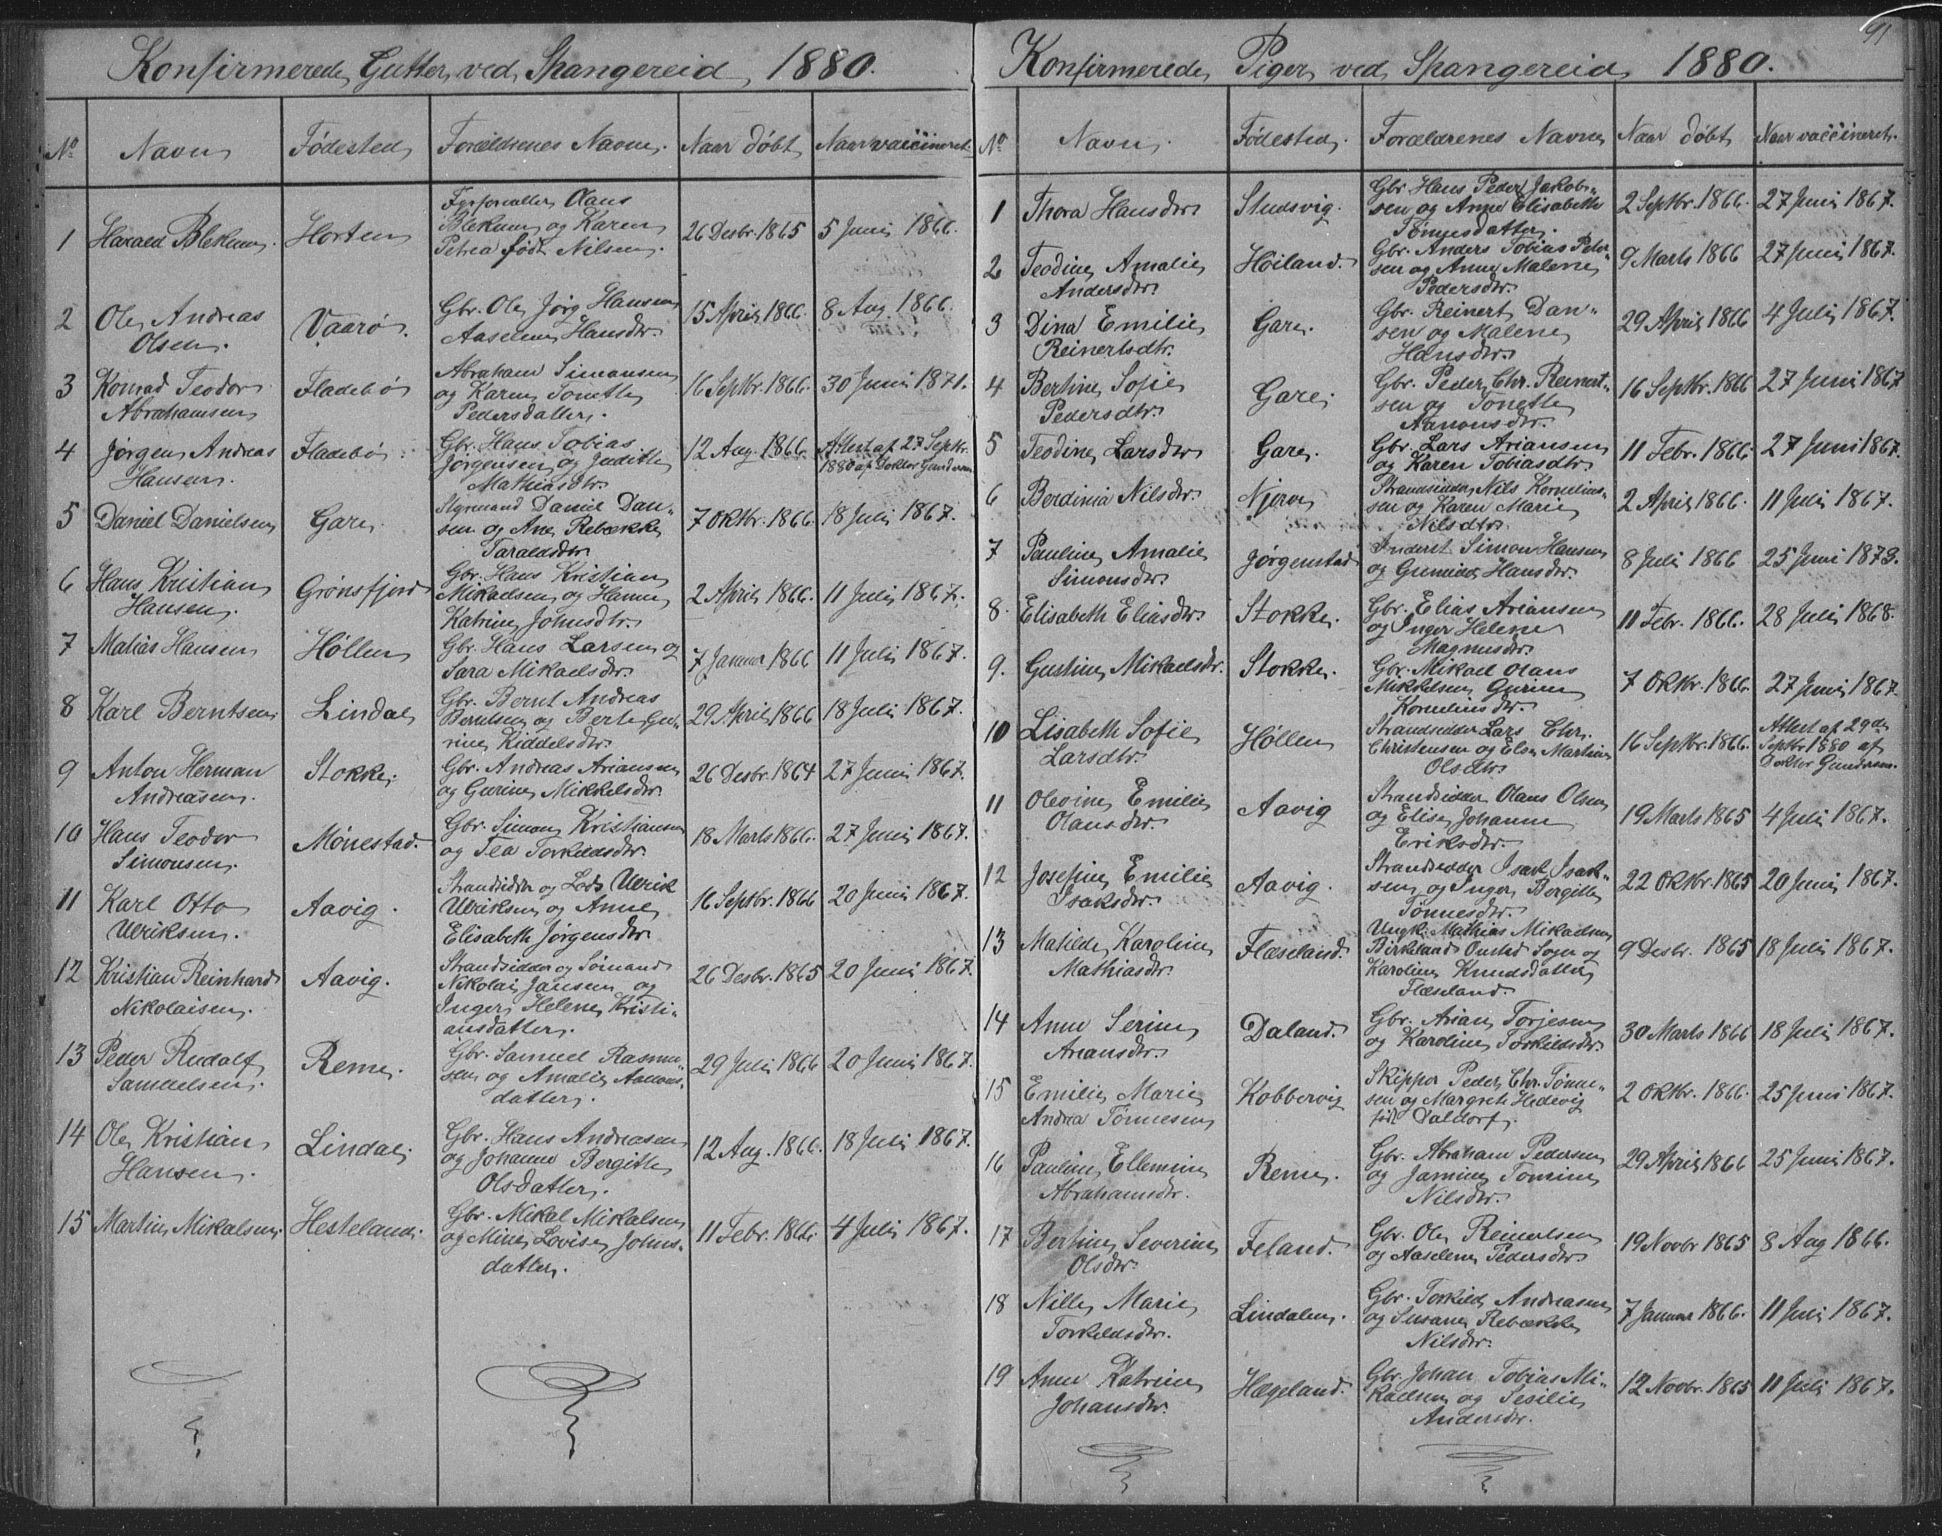 Konfirmerede Gutter ved Spangereid 1880.
No Navn Fødested Forældrenes Navne. Naar døbt Naar vaccineret.
1 Harald Blekum. Horten Fyrforvalter Olaus
Blekum og Karen
Petrea født Nilsen. 26 Desbr. 1865 5 Juni 1866.
2 Ole Andreas
Olsen. Vaarø. Gbr. Ole Jørg Hansen
Aaselene Hansdtr. 15 April 1866. 8 Aug. 1866.
3 Konrad Teodor
Abrahamsen Fladebø Abraham Simonsen
og Karen Tonette
Pedersdatter. 16 Septbr. 1866. 30 Juni 1871.
4 Jørgen Andreas
Hansen. Fladebø Gbr. Hans Tobias
Jørgensen og Judithe
Mathiasdtr. 12 Aug. 1866. Attest af 27 Septbr.
1880 af Doktor Gundersen
5 Daniel Danielsen Gare. Styrmand Daniel Dan-
sen og Ane Rebekke
Taraldsdtr. 7 Oktbr. 1866. 18 Juli 1867.
6 Hans Kristian
Hansen. Grønsfjord Gbr. Hans Kristian
Mikaelsen og Hanne
Katrine Johnsdtr. 2 April 1866. 11 Juli 1867.
7 Matias Hansen Høllen Gbr. Hans Larsen og
Sara Mikaelsdtr. 7 Januar 1866 11 Juli 1867.
8 Karl Berntsen Lindal Gbr. Bernt Andreas
Berntsen og Berte Gu-
rine Kiddelsdtr. 29 April 1866 18 Juli 1867.
9 Anton Herman
Andreasen. Stokke. Gbr. Andreas Ariansen
og Gurine Mikkelsdtr. 26 Desbr. 1864 27 Juni 1867.
10 Hans Teodor
Simonsen. Mønestad. Gbr. Simon Kristiansen
og Tea Torkildsdtr. 18 Marts 1866. 27 Juni 1867.
11 Karl Otto
Ulriksen. Aavig. Strandsidder og Lods Ulrik
Ulriksen og Anne
Elisabeth Jørgensdtr. 16 Septbr. 1866 20 Juni 1867.
12 Kristian Reinhard
Nikolaisen. Aavig. Strandsidder og Sømand
Nikolai Jansen og
Inger Helene Kristi-
ansdatter. 26 Desbr. 1865 20 Juni 1867.
13 Peder Rudolf
Samuelsen. Reme. Gbr. Samuel Rasmu-
sen og Amalie Aanons-
datter. 29 Juli 1866 20 Juni 1867.
14 Ole Kristian
Hansen. Lindal. Gbr. Hans Andreasen
og Johanne Bergitte
Olsdatter. 12 Aug. 1866. 18 Juli 1867.
15 Martin Mikalsen. Hesteland. Gbr. Mikal Mikalsen
og Mine Lovise Johns-
datter. 11 Febr. 1866. 4 Juli 1867.
91
Konfirmerede Piger ved Spangereid 1880.
No Navn. Fødested. Forældrenes Navne Naar døbt Naar vaccineret.
1 Thora Hansdtr. Studsvig. Gbr. Hans Peder Jakob-
sen og Anne Elisabeth
Tønnesdatter. 2 Septbr. 1866. 27 Juni 1867.
2 Teodine Amalie
Andersdtr. Høiland. Gbr. Anders Tobias Peder-
sen og Anne Malene
Pedersdtr. 9 Marts 1866 27 Juni 1867.
3 Dina Emilie
Reinertsdtr. Gare. Gbr. Reinert Dan-
sen og Malene
Hansdtr. 29 April 1866 4 Juli 1867.
4 Bertine Sofie
Pedersdtr. Gare. Gbr. Peder Chr. Reinert-
sen og Tonette
Aanonsdtr. 16 Septbr. 1866 27 Juni 1867
5 Teodine Larsdtr Gare. Gbr. Lars Ariansen
og Karen Tobiasdtr 11 Febr. 1866. 27 Juni 1867.
6 Berdinia Nilsdtr. Njerve Strandsidder Nils Kornelius-
sen og Karen Marie
Nilsdtr. 2 April 1866 11 Juli 1867.
7 Pauline Amalie
Simonsdtr. Jørgenstad Inderst Simon Hansen
og Gunild Hansdtr. 8 Juli 1866 25 Juni 1873.
8. Elisabeth Eliasdtr. Stokke. Gbr. Elias Ariansen
og Inger Helene
Magnusdtr. 11 Febr. 1866. 28 Juli 1868.
9. Gustine Mikaelsdtr. Stokke. Gbr. Mikael Olaus
Mikkelsen Gurine
Korneliusdtr. 7 Oktbr. 1866. 27 Juni 1867
10 Lisabeth Sofie
Larsdtr. Høllen Strandsidder Lars Chr.
Christensen og Elen Martine
Olsdtr. 16 Septbr. 1866. Attest af 29de
Septbr. 1880 af
Doktor Gundersen.
11 Olevine Emilie
Olausdtr. Aavig Strandsidder Olaus Olsen
og Elise Johanne
Eriksdtr. 19 Marts 1865 4 Juli 1867.
12 Josefine Emilie
Isaksdtr. Aavig. Strandsidder Isak Isak-
sen og Inger Bergitte
Tønnesdtr. 22 Oktbr. 1865 20 Juni 1867.
13 Matilde Karoline
Mathiasdtr. Flæseland. Ungk. Mathias Mikaelsen
Birkeland Ousted Sogn og
Karoline Knudsdatter
Flæseland. 9 Desbr. 1865 18 Juli 1867.
14 Anne Serine
Ariansdtr. Daland. Gbr. Arian Torjesen
og Karoline Torkildsdtr. 30 Marts 1866 18 Juli 1867.
15 Emilie Marie
Andrea Tønnesen Kobbervig Skipper Peder Chr. Tønne-
sen og Margrete Hedevig
født Daldorf. 2 Oktbr. 1866. 25 Juni 1867.
16 Pauline Ellemine
Abrahamsdtr. Reme. Gbr. Abraham Pedersen
og Jamine Tomine
Nilsdtr. 29 April 1866 25 Juni 1867.
17 Bertine Severine
Olsdtr. Feland. Gbr. Ole Reinertsen
og Aaselene Pedersdtr. 19 Novbr 1865 8 Aug 1866.
18 Nille Marie
Torkildsdtr. Lindalen. Gbr. Torkild Andreasen
og Susane Rebækka
Nilsdtr. 7 Januar 1866. 11 Juli 1867.
19 Anne Katrine
Johansdtr. Hægeland. Gbr. Johan Tobias Mi-
kaelsen og Sesilie
Andersdtr. 12 Novbr. 1865 11 Juli 1867.